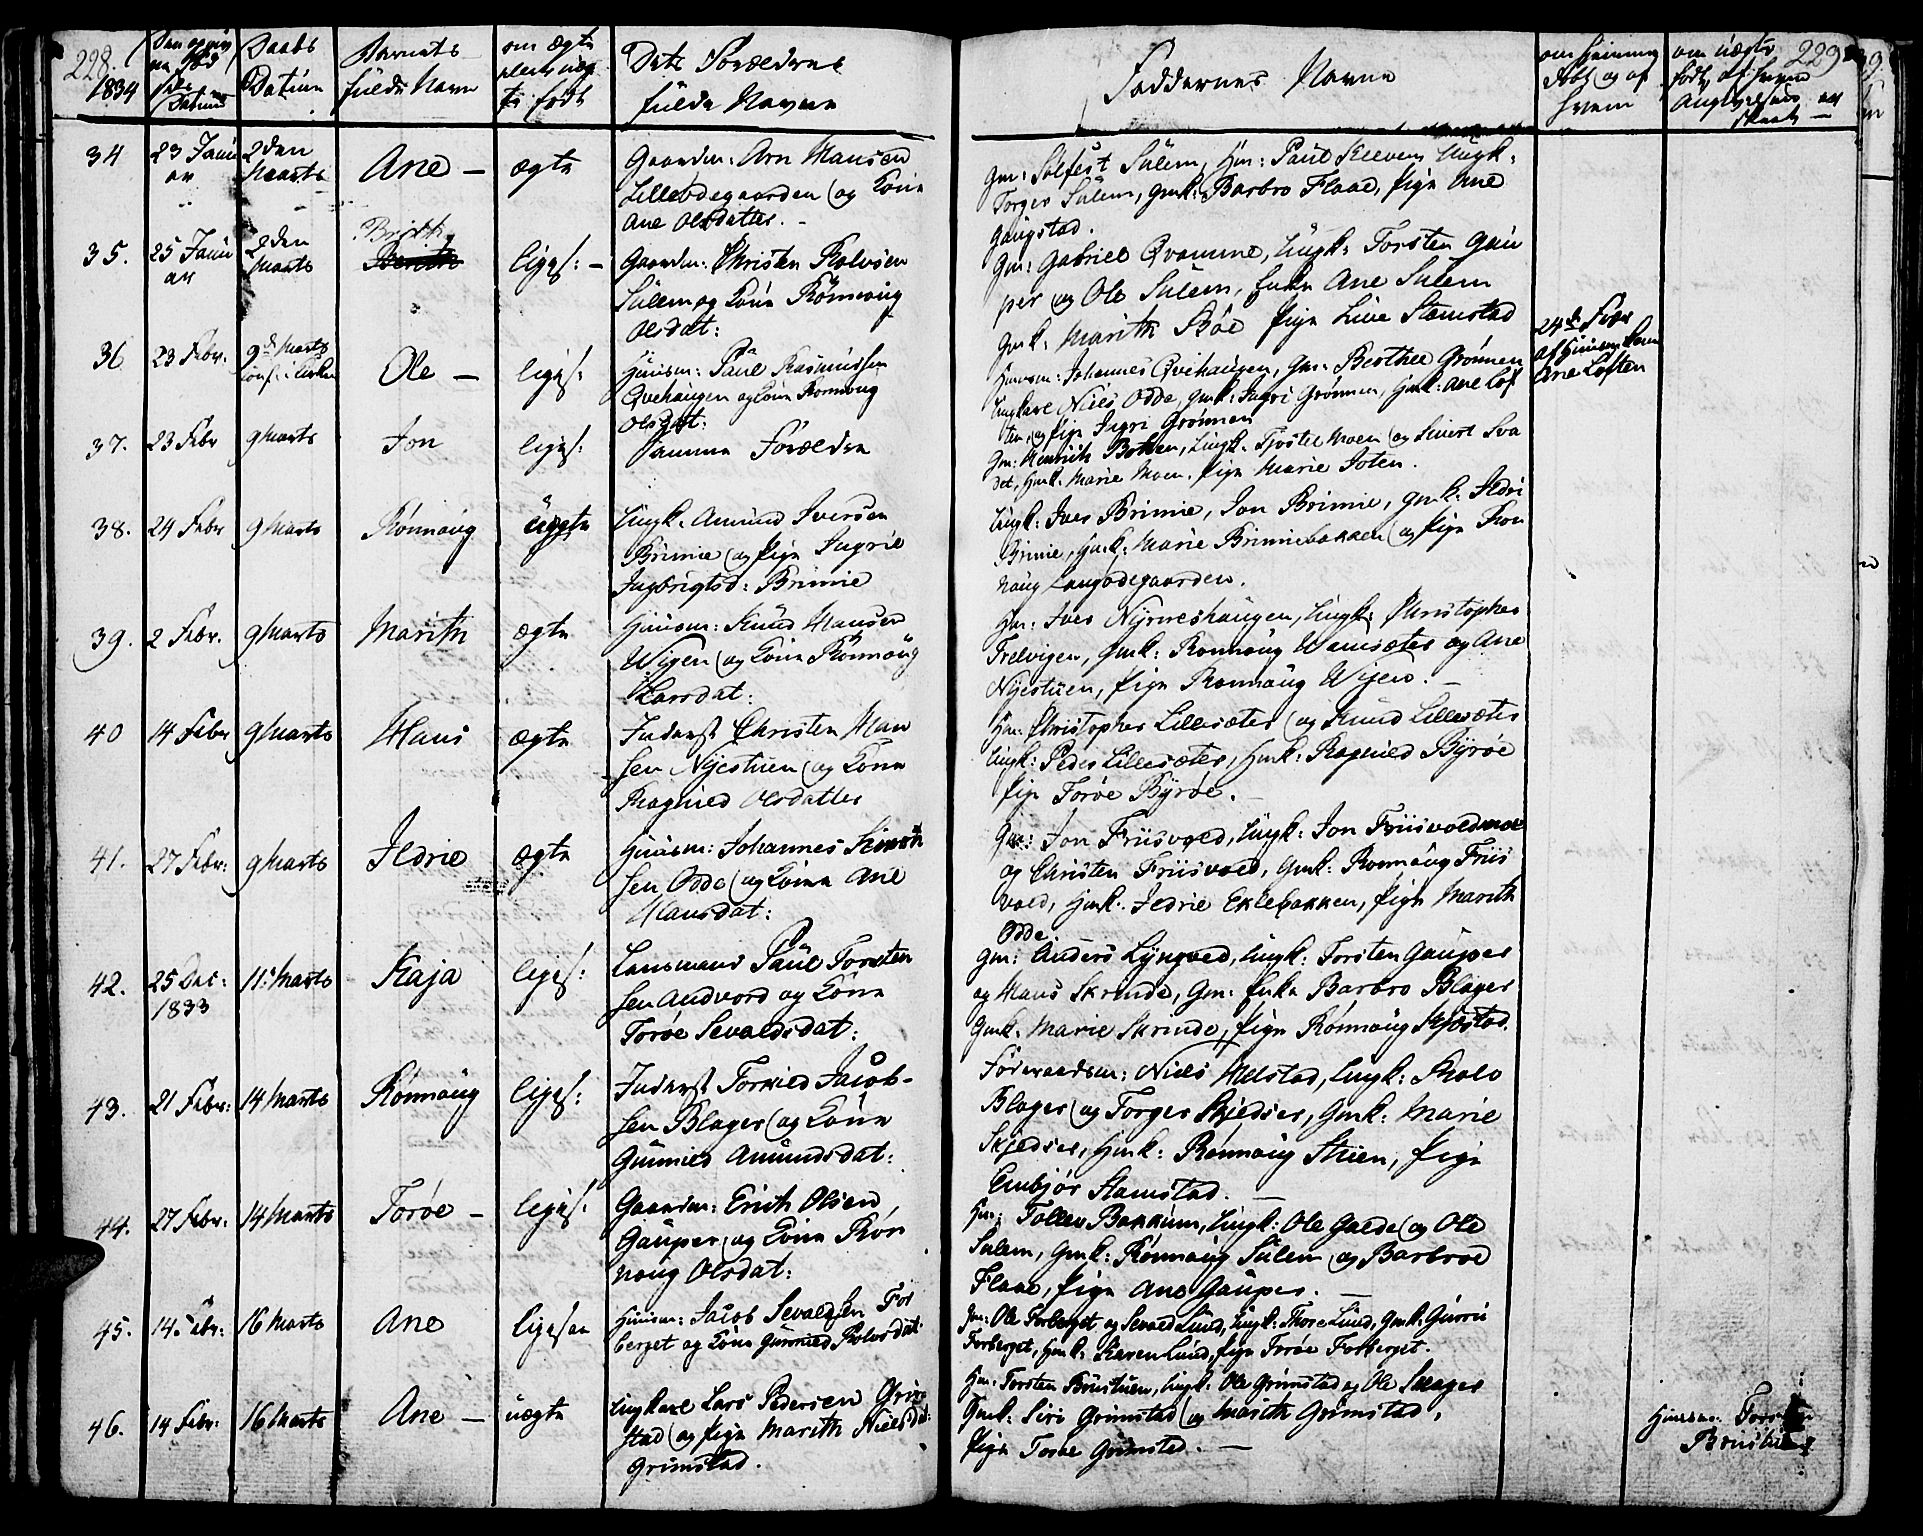 228.
1834
Daabs
Datum
Barnets
fulde Navn
om ægte
eller uæg
te født
Dets Forældres
fulde Navne
Faddernes Navne
229
34
23 Janu
ar
2den
Marts
Ane —
ægte
Gaardm: Arn Hansen
Lilleødegaarden og Kone
Ane Olsdatter. –
Gm: Sølfest Sulem, Hm: Paul Kleven, Ungk:
Torger Sulem, Gmk: Barbro Flaae, Pige Ane
Gaugstad.
35.
25 Janu
ar
2den
Marts
Brith
ligel: –
Gaardm: Christen Rolvsen
Sulem og Kone Rønnoug
Olsdat:
Gm: Gabriel Qvamme, Ungk: Torsten Gau
per og Ole Sulem, Enke Ane Sulem
Gmk: Marith Bøe Pige Live Stamstad
36
23 Febr.
9de Marts
conf: i Kirken
Ole —
ligel:
Huusm: Paul Rasmussen
Qvehaugen og Kone Rønnoug
Olsdat:
Huusm: Johannes Qvehaugen, Gm: Berthel Grønnen
Ungkarl Niels Odde, Gmk: Ingri Grønnen, Hmk: Ane Lof
ten, og Pige Ingri Grønnen
24de Febr
af Huusm. Kone
Ane Loften
37.
23 Febr
9 Marts
Jon
ligel:
Samme Forældre
Gm: Henrich Botten, Ungk. Tjostel Moen og Sivert Sva
det, Hmk. Marie Moen. Pige Marie Toten.
38.
24 Febr
9 Marts
Rønnoug
uægte
Ungk. Amund Iversen
Brimie og Pige Ingrie
Ingbrigtsd: Brimie
Ungk: Iver Brimie, Jon Brimie, Gmk: Jldri
Brimie, Hmk: Marie Brimiebakken og Pige Røn
noug Langødegaarden.
39.
2 Febr.
9 Marts
Marith
ægte
Huusm: Knud Hansen
Wigen og Kone Rønnoug
Larsdat:
Hm: Iver Nyrneshaugen, Ungk: Christopher
Trelvigen, Gmk: Ronnoug Hamsæter og Ane
Nyestuen, Pige Ronnoug Wigen. –
40
14 Febr
9 Marts
Hans
ægte
Inderst Christen Han
sen Nyestuen og Kone
Ragnild Olsdatter
Hm: Christopher Lillesæter og Knud Lillesæter
Ungk: Peder Lillesæter, Hmk: Ragnild Byrøe
Pige Torøe Byrøe.
41.
27 Febr:
9 Marts
Jldrie
ægte
Huusm: Johannes Simen
sen Odde og Kone Ane
Hansdat:
Gm: Jon Friisvold, Ungk: Jon Friisvoldmoe
og Christen Friisvold, Gmk: Rønnoug Friis
vold, Hmk. Jldrie Eklebakken, Pige Marith
Odde.
42.
25 Dec:
1833
11: Marts
Kaja
ligel:
Lensmand Paul Torsten
sen Andvord og Kone
Torøe Sevaldsdat:
Gm: Anders Lyngved, Ungk: Torsten Gauper
og Hans Skrinde, Gm: Enke Barbro Blager
Gmk. Marie Skrinde, Pige Rønnoug Skjæstad.
43.
21 Febr:
14 Marts
Rønnoug
ligel:
Inderst Torkild Jacob-
sen Blager og Kone
Gunnild Amundsdat:
Føderaadsm: Niels Helstad, Ungk: Rolv
Blager og Torger Skjedser, Gmk: Marie
Skjedser, Hmk: Rønnoug Stuen, Pige
Embjør Stamstad. –
44.
27 Febr:
14 Marts
Torøe –
ligel:
Gaardm: Erich Olsen,
Gauper og Kone Røn
noug Olsdat:
Hm: Tollev Bakkum, Ungk: Ole Galde og Ole
Sulem, Gmk: Rønnoug Sulem og Barbroe
Flaae, Pige Ane Gauper. –
45.
14 Febr:
16 Marts
Ane
ligesaa
Huusm: Jacob Sevaldsen For
berget og Kone Gunnild Rolvsdat.
Gm: Ole Forberget og Sevald Lund, Ungk: Thore Lund, Gmk: Guroi
Forberget, Hmk: Karen Lund, Pige Torøe Forberget.
46.
14 Febr:
16 Marts
Ane —
uægte
Ungkarl Lars Pedersen Grim
stad og Pige Marith Nielsdat:
Grimstad.
Hm: Torsten Bruestuen, Ungk. Ole Grimstad og Ole Skager
Gmk: Siri Grimstad og Marith Grimstad,
Pige Torbe Grimstad. —
Huusm: Torsten
Bruestuen